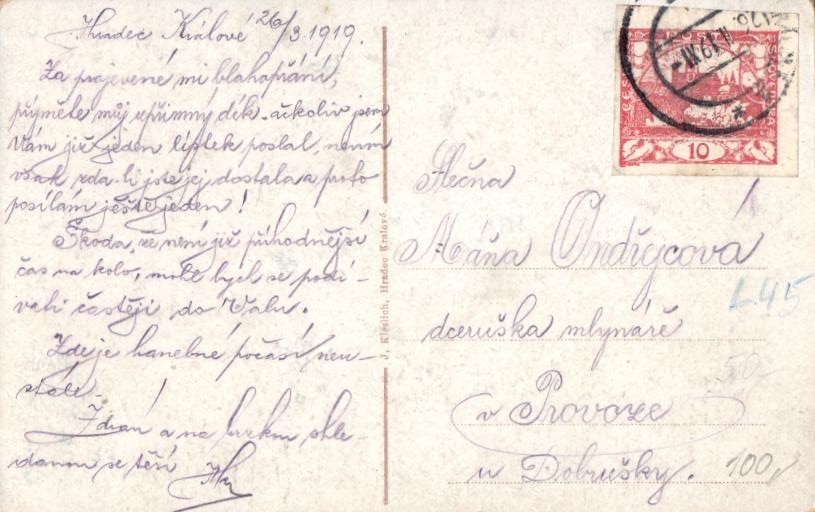 Hradec Králové 26/3.1919.
Za projevené mi blahopřání,
přijměte můj upřímný dík - ačkoliv jsem
Vám již jeden lístek poslal, nevím
však zda-li jste jej dostala a proto
posílám ještě jeden!
Škoda, že není již příhodnější
čas na kolo, mohl bych se podí-
vati častěji do Valu.
Zde je hanebné počasí neu-
stále - !
Zdraví a na brzkou shle-
danou se těší
J. Kleslich, Hradec Králové
10
Slečna
Máňa Ondřycová
dceruška mlynáře
v Provoze
u Dobrušky.
L45
50
100